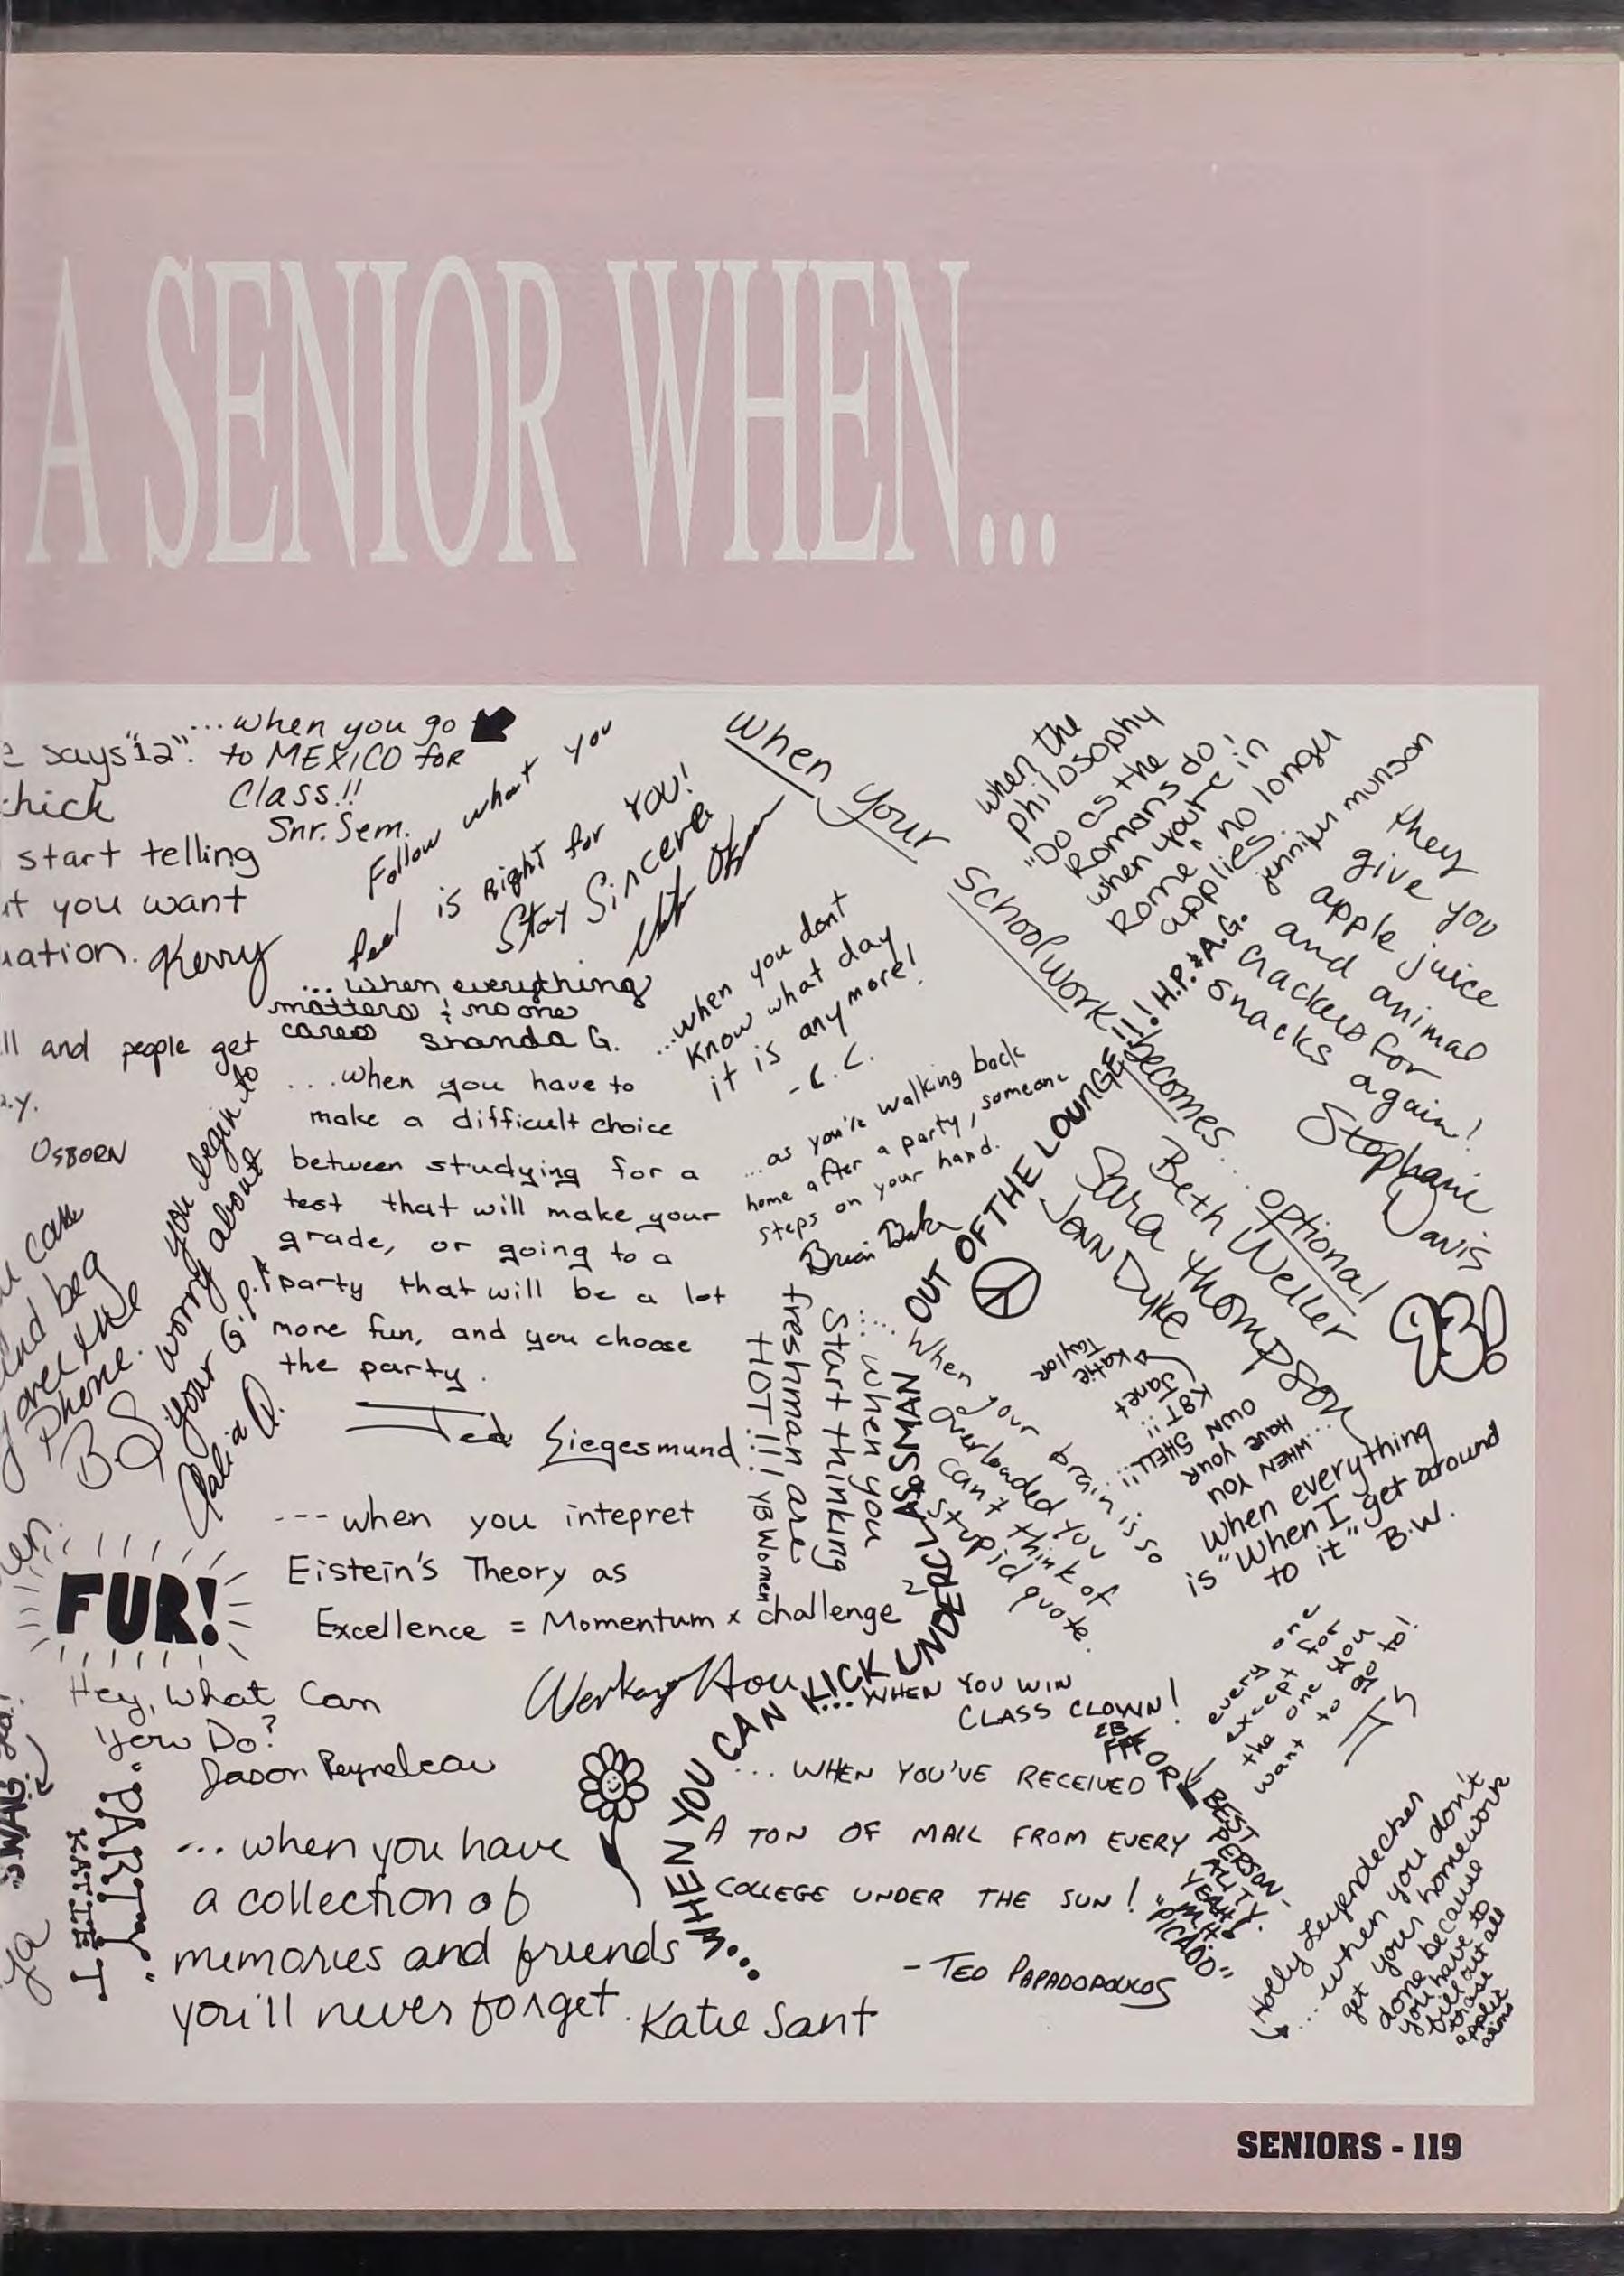 A SENIOR WHEN...
says "12".
chick
start telling
you want
Kerry
...when you go
to MEXICO for
Class!!
Snr. Sem.
Follow what you
feel is Right for YOU!
Stay Sincere
... when everything
matters & no one
cares Shanda G.
ll and people get
OSBORN
and beg
over the
Phone.
BS
you begin to
worry about
your G.P.A
...when you have to
make a difficult choice
between studying for a
test that will make your
grade, or going to a
party that will be a lot
more fun, and you choose
the party.
Ted Siegesmund
...when you dont
know what day
it is anymore!
-C.C.
...as you're walking back
home after a party, someone
steps on your hand.
when your schoolwork becomes... optional
Beth Weller
Sara Thompson
Jenn Dyke
when the
philosophy
"Do as the
Romans do!
when you're in
Rome" no longer
applies.
jennifer munson
they
give you
apple juice
and animal
crackers for
snacks again!
Stephanie
Davis
93!
...WHEN YOU CAN KICK UNDERCLASSMAN OUT OF THE LOUNGE!!! H.P. & A.G.
... when you
Start thinking
freshman are
HOT!!! YB Women
... When your brain is so
overloaded you
can't think of
a stupid quote.
Katie
Taylor
Janet
K&T!!
...WHEN YOU
HAVE YOUR
OWN SHELL!!
when everything
is "When I get around
to it" B.W.
--- when you intepret
Eistein's Theory as
Excellence = Momentum x challenge 2
FUR!
Hey, What Can
You Do?
"PARTY"
KATIE T
... when you have
a collection of
memories and friends
you'll never forget. Katie Sant
...WHEN YOU WIN
CLASS CLOWN!
OR
BEST
PERSON-
ALITY.
YEAH!
M.H.
"PICADO"
... WHEN YOU'VE RECEIVED
A TON OF MAIL FROM EVERY
COLLEGE UNDER THE SUN!
- TED PAPADOPOULOS
every one
except for
the one you
want to go to!
Holly Leyendecker
...when you don't
get your homework
done because
you have to
fill out all
those
SENIORS - 119